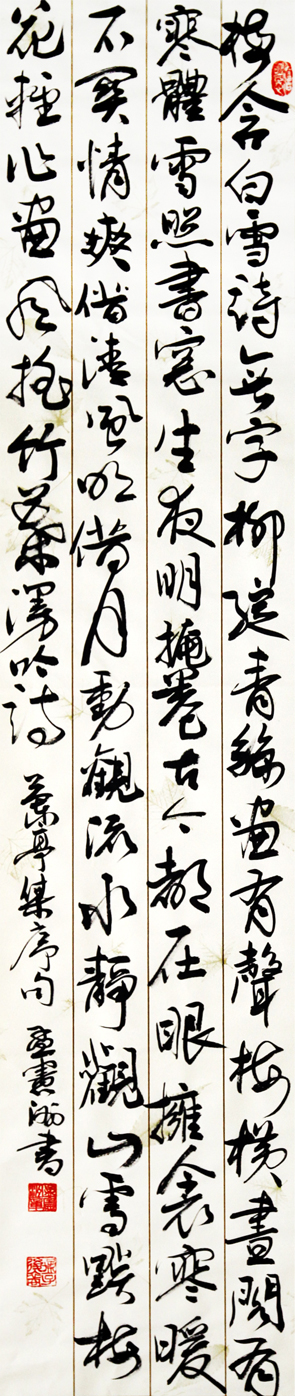 梅含白雪詩無字柳綻青絲畫有聲梅橫畫閣有
寒體雪照書窓生夜明掩卷古今都在眼擁衾寒暖
不關情爽借清風明借月動觀流水靜觀山雪點梅
花輕作畫風搖竹葉漫吟詩 蘭亭集序句 書